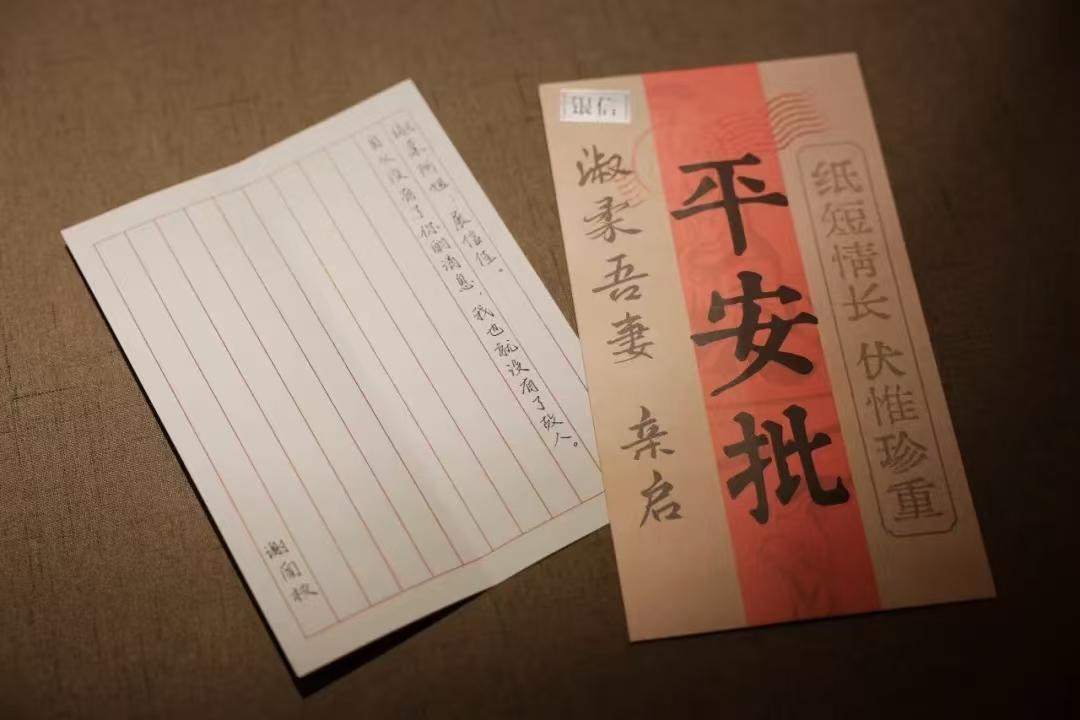 淑柔阿，展信佳。
自从没有了你的消息，我也就没有了故人。
谢南枝
银信
纸短情长 伏惟珍重
平安批
淑柔吾妻 亲启